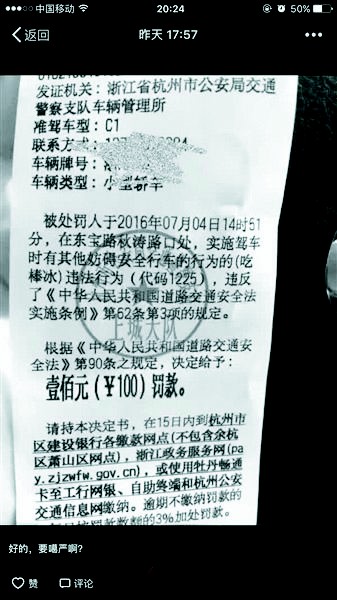 中国移动 20:24 50%
返回 昨天 17:57
发证机关：浙江省杭州市公安局交通
警察支队车辆管理所
准驾车型：C1
联系方式：
车辆牌号：
车辆类型：小型轿车
被处罚人于2016年07月04日14时51
分，在东宝路秋涛路口处，实施驾车
时有其他妨碍安全行车的行为的(吃
棒冰)违法行为（代码1225），违反
了《中华人民共和国道路交通安全法
实施条例》第62条第3项的规定。
上城大队
根据《中华人民共和国道路交通安
全法》第90条之规定，决定给予：
壹佰元（￥100）罚款。
请持本决定书，在15日内到杭州市
区建设银行各缴款网点(不包含余杭
区萧山区网点)，浙江政务服务网(pa
y.zjzwfw.gov.cn)，或使用牡丹畅通
卡至工行网银、自助终端和杭州公安
交通信息网缴纳。逾期不缴纳罚款的
罚款数额的3%加处罚款。
好的，要噶严啊？
赞 评论